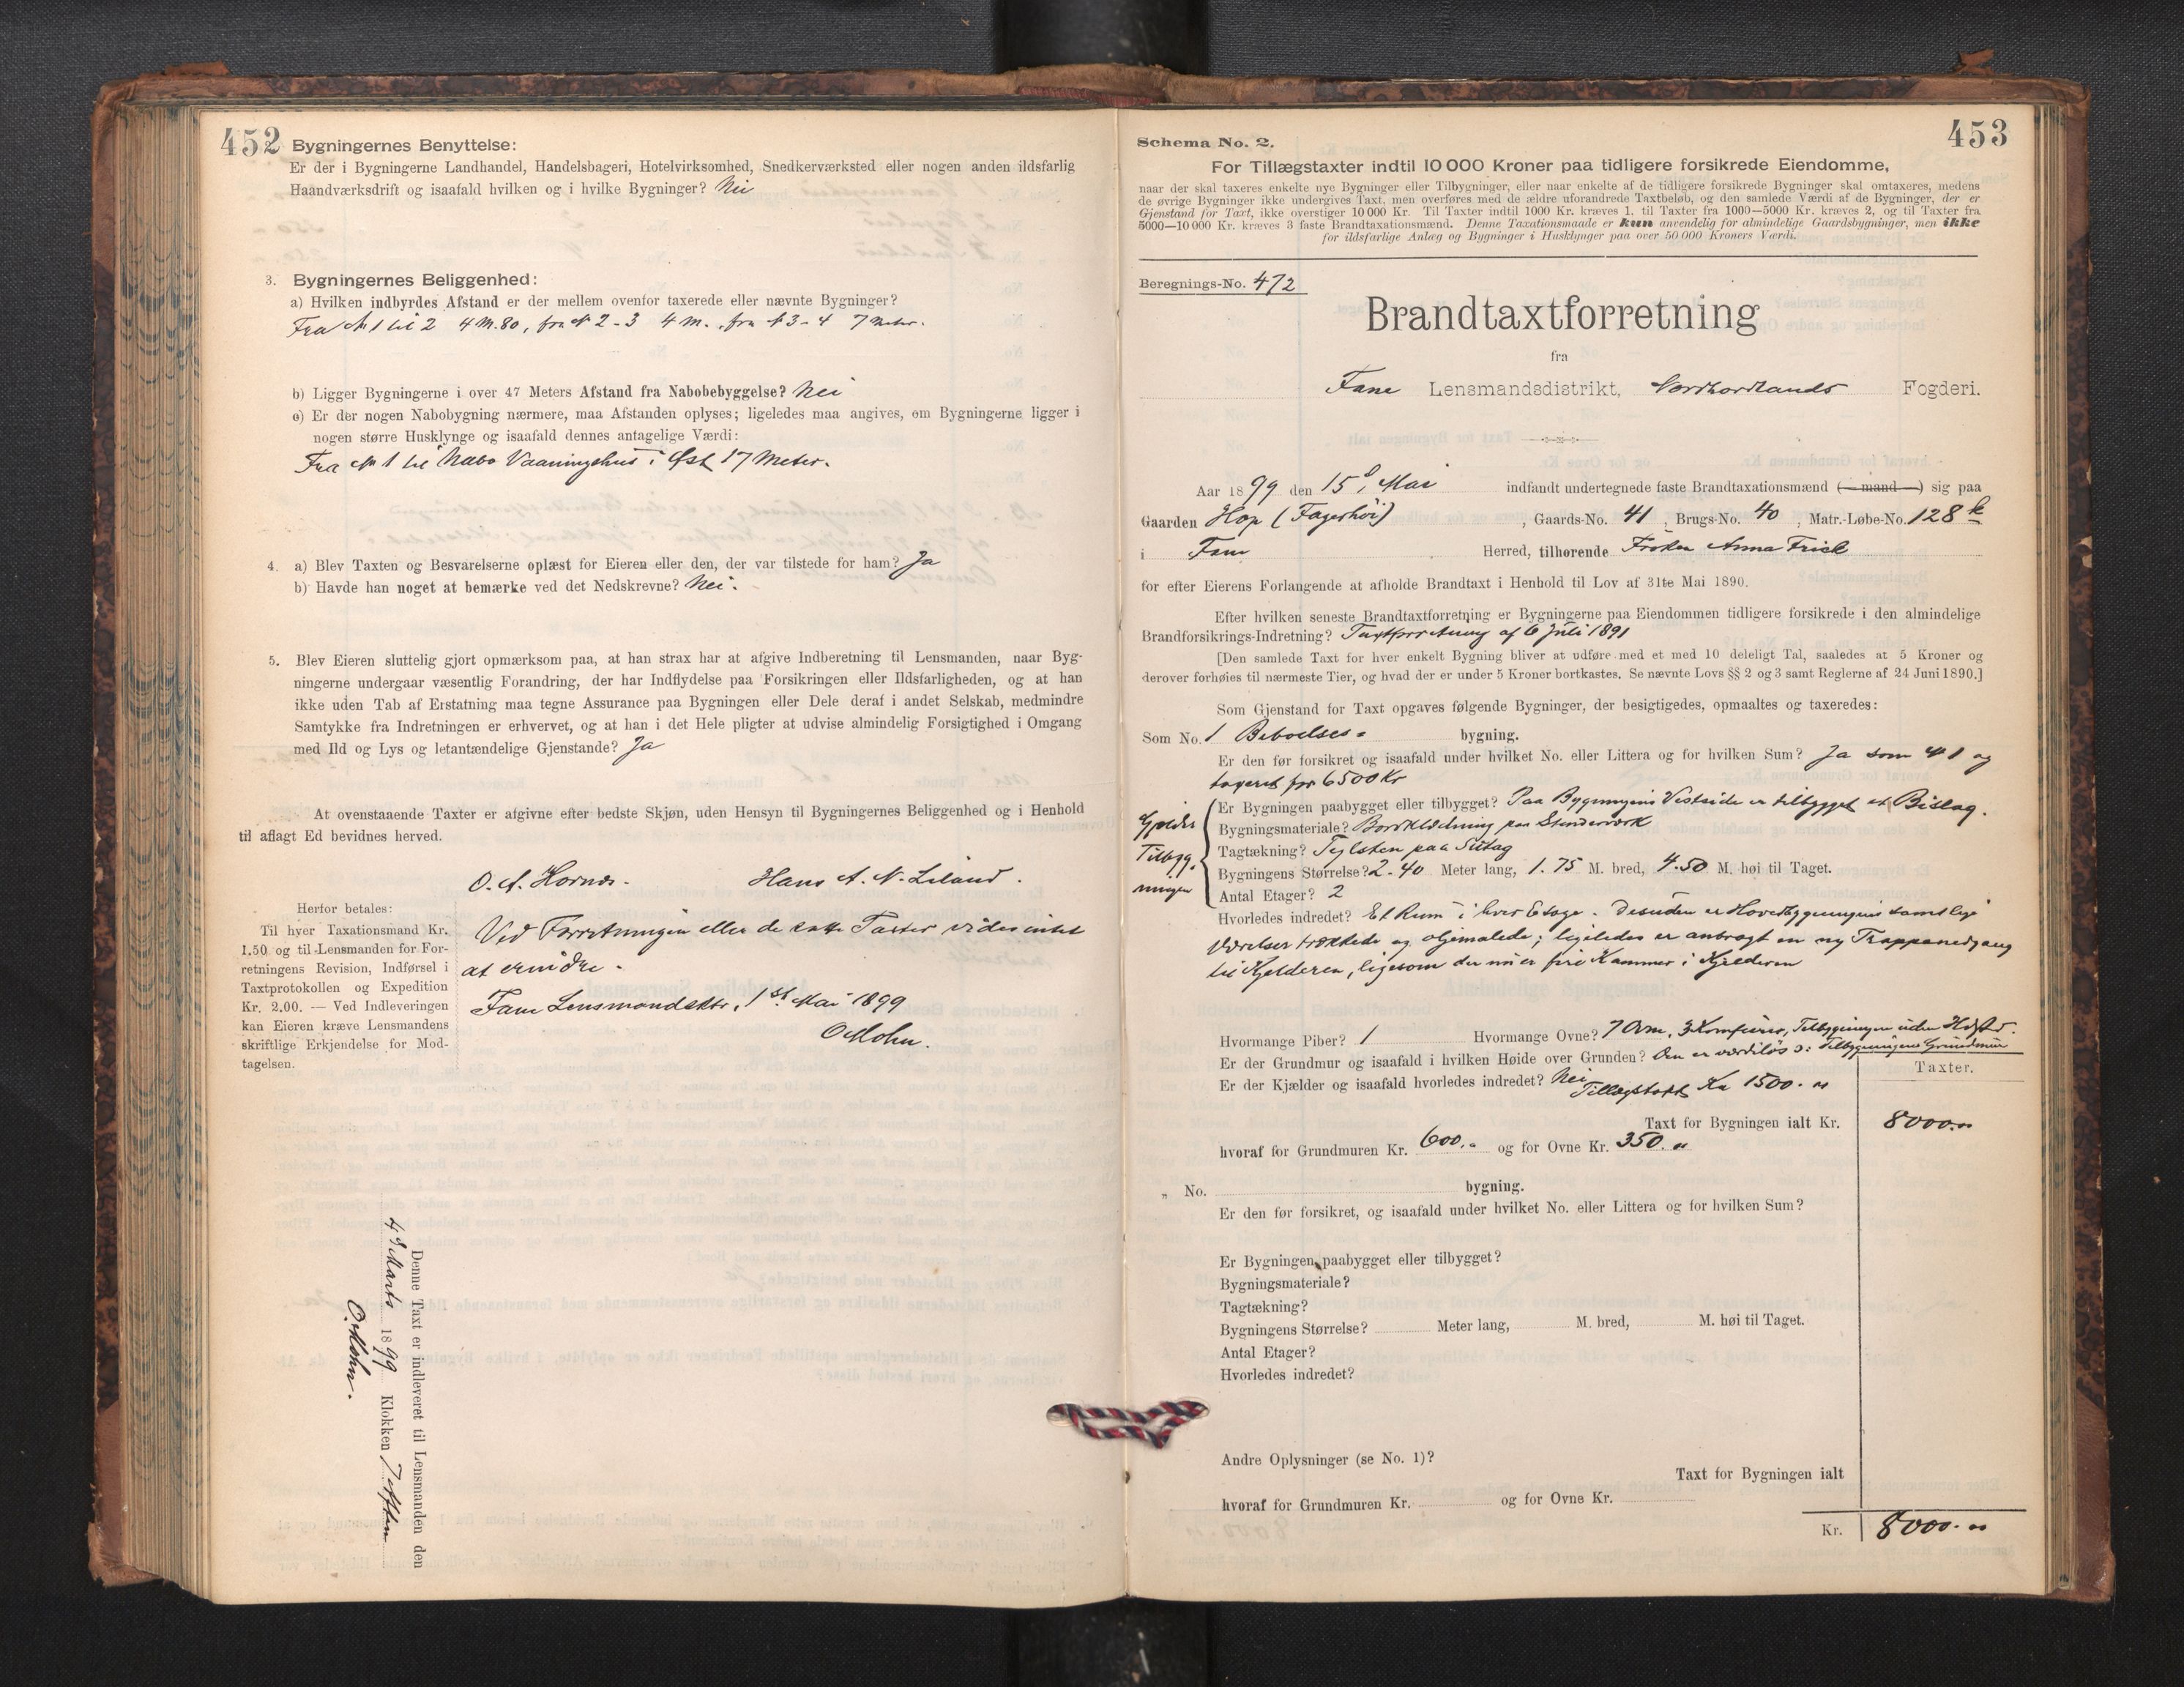 452
Bygningernes Benyttelse:
Er der i Bygningerne Landhandel, Handelsbageri, Hotelvirksomhed, Snedkerværksted eller nogen anden ildsfarlig
Haandværksdrift og isaafald hvilken og i hvilke Bygninger? Nei
3. Bygningernes Beliggenhed:
a) Hvilken indbyrdes Afstand er der mellem ovenfor taxerede eller nævnte Bygninger?
Fra № 1 til 2 4 M. 80, fra № 2 - 3 4 M., fra № 3 - 4 7 Meter.
b) Ligger Bygningerne i over 47 Meters Afstand fra Nabobebyggelse? Nei
c) Er der nogen Nabobygning nærmere, maa Afstanden oplyses; ligeledes maa angives, om Bygningerne ligger i
nogen større Husklynge og isaafald dennes antagelige Værdi:
Fra № 1 til Nabo Vaaningshus i Øst 17 Meter.
4. a) Blev Taxten og Besvarelserne oplæst for Eieren eller den, der var tilstede for ham? Ja
b) Havde han noget at bemærke ved det Nedskrevne? Nei.
5. Blev Eieren sluttelig gjort opmærksom paa, at han strax har at afgive Indberetning til Lensmanden, naar Byg-
ningerne undergaar væsentlig Forandring, der har Indflydelse paa Forsikringen eller Ildsfarligheden, og at han
ikke uden Tab af Erstatning maa tegne Assurance paa Bygningen eller Dele deraf i andet Selskab, medmindre
Samtykke fra Indretningen er erhvervet, og at han i det Hele pligter at udvise almindelig Forsigtighed i Omgang
med Ild og Lys og letantændelige Gjenstande? Ja
At ovenstaaende Taxter er afgivne efter bedste Skjøn, uden Hensyn til Bygningernes Beliggenhed og i Henhold
til aflagt Ed bevidnes herved.
O. A. Hornes. Hans A. N. Liland.
Herfor betales:
Til hver Taxationsmand Kr.
1.50 og til Lensmanden for For-
retningens Revision, Indførsel i
Taxtprotokollen og Expedition
Kr. 2.00. — Ved Indleveringen
kan Eieren kræve Lensmandens
skriftlige Erkjendelse for Mod-
tagelsen.
Ved Forretningen eller de satte Taxter vides intet
at erindre.
Fane Lensmandsktr, 1st Mai 1899
O Mohn.
Denne Taxt er indleveret til Lensmanden den
4 Marts 1899 Klokken 7 Aften
O. Mohn.
453
Schema No. 2.
For Tillægstaxter indtil 10 000 Kroner paa tidligere forsikrede Eiendomme,
naar der skal taxeres enkelte nye Bygninger eller Tilbygninger, eller naar enkelte af de tidligere forsikrede Bygninger skal omtaxeres, medens
de øvrige Bygninger ikke undergives Taxt, men overføres med de ældre uforandrede Taxtbeløb, og den samlede Værdi af de Bygninger, der er
Gjenstand for Taxt, ikke overstiger 10 000 Kr. Til Taxter indtil 1000 Kr. kræves 1, til Taxter fra 1000—5000 Kr. kræves 2, og til Taxter fra
5000—10 000 Kr. kræves 3 faste Brandtaxationsmænd. Denne Taxationsmaade er kun anvendelig for almindelige Gaardsbygninger, men ikke
for ildsfarlige Anlæg og Bygninger i Husklynger paa over 50 000 Kroners Værdi.
Beregnings-No. 472
Brandtaxtforretning
fra
Fane Lensmandsdistrikt, Nordhordlands Fogderi.
Aar 1899 den 15d, Mai indfandt undertegnede faste Brandtaxationsmænd (— mand —) sig paa
Gaarden Hop (Fagerhøi), Gaards-No. 41, Brugs-No. 40, Matr.-Løbe-No. 128 k
i Fane Herred, tilhørende Frøken Anna Friele
for efter Eierens Forlangende at afholde Brandtaxt i Henhold til Lov af 31te Mai 1890.
Efter hvilken seneste Brandtaxtforretning er Bygningerne paa Eiendommen tidligere forsikrede i den almindelige
Brandforsikrings-Indretning? Taxtforretning af 6 Juli 1891
[Den samlede Taxt for hver enkelt Bygning bliver at udføre med et med 10 deleligt Tal, saaledes at 5 Kroner og
derover forhøies til nærmeste Tier, og hvad der er under 5 Kroner bortkastes. Se nævnte Lovs §§ 2 og 3 samt Reglerne af 24 Juni 1890.]
Som Gjenstand for Taxt opgaves følgende Bygninger, der besigtigedes, opmaaltes og taxeredes:
Som No. 1 Beboelses- bygning.
Er den før forsikret og isaafald under hvilket No. eller Littera og for hvilken Sum? Ja som № 1 og
taxeret for 6500 Kr
Gjælder Tilbygningen
Er Bygningen paabygget eller tilbygget? Paa Bygningens Vestside er tilbygget et Bislag.
Bygningsmateriale? Bordklædning paa Stenderværk
Tagtækning? Teglsten paa Sutag
Bygningens Størrelse? 2.40 Meter lang, 1.75 M. bred, 4.50 M. høi til Taget.
Antal Etager? 2
Hvorledes indredet? Et Rum i hver Etage. Desuden er Hovedbygningens samtlige
Værelser trækkede og oljemalede; ligeledes er anbragt en ny Trappenedgang
til Kjelderen, ligesom der nu er fire Kammer i Kjelderen
Hvormange Piber? 1 Hvormange Ovne? 7 Ovne, 3 Komfurer, Tilbygningen uden Ildsted.
Er der Grundmur og isaafald i hvilken Høide over Grunden? Den er værdiløs ɔ: Tilbygningens Grundmur
Er der Kjælder og isaafald hvorledes indredet? Nei
Tillægstaxt Kr 1500.
Taxter.
Taxt for Bygningen ialt Kr. 8000.
hvoraf for Grundmuren Kr. 600. og for Ovne Kr. 350.
„ No. bygning.
Er den før forsikret, og isaafald under hvilket No. eller Littera og for hvilken Sum?
Er Bygningen paabygget eller tilbygget?
Bygningsmateriale?
Tagtækning?
Bygningens Størrelse? Meter lang, M. bred, M. høi til Taget.
Antal Etager?
Hvorledes indredet?
Andre Oplysninger (se No. 1)?
Taxt for Bygningen ialt
hvoraf for Grundmuren Kr. og for Ovne Kr.
Kr. 8000.